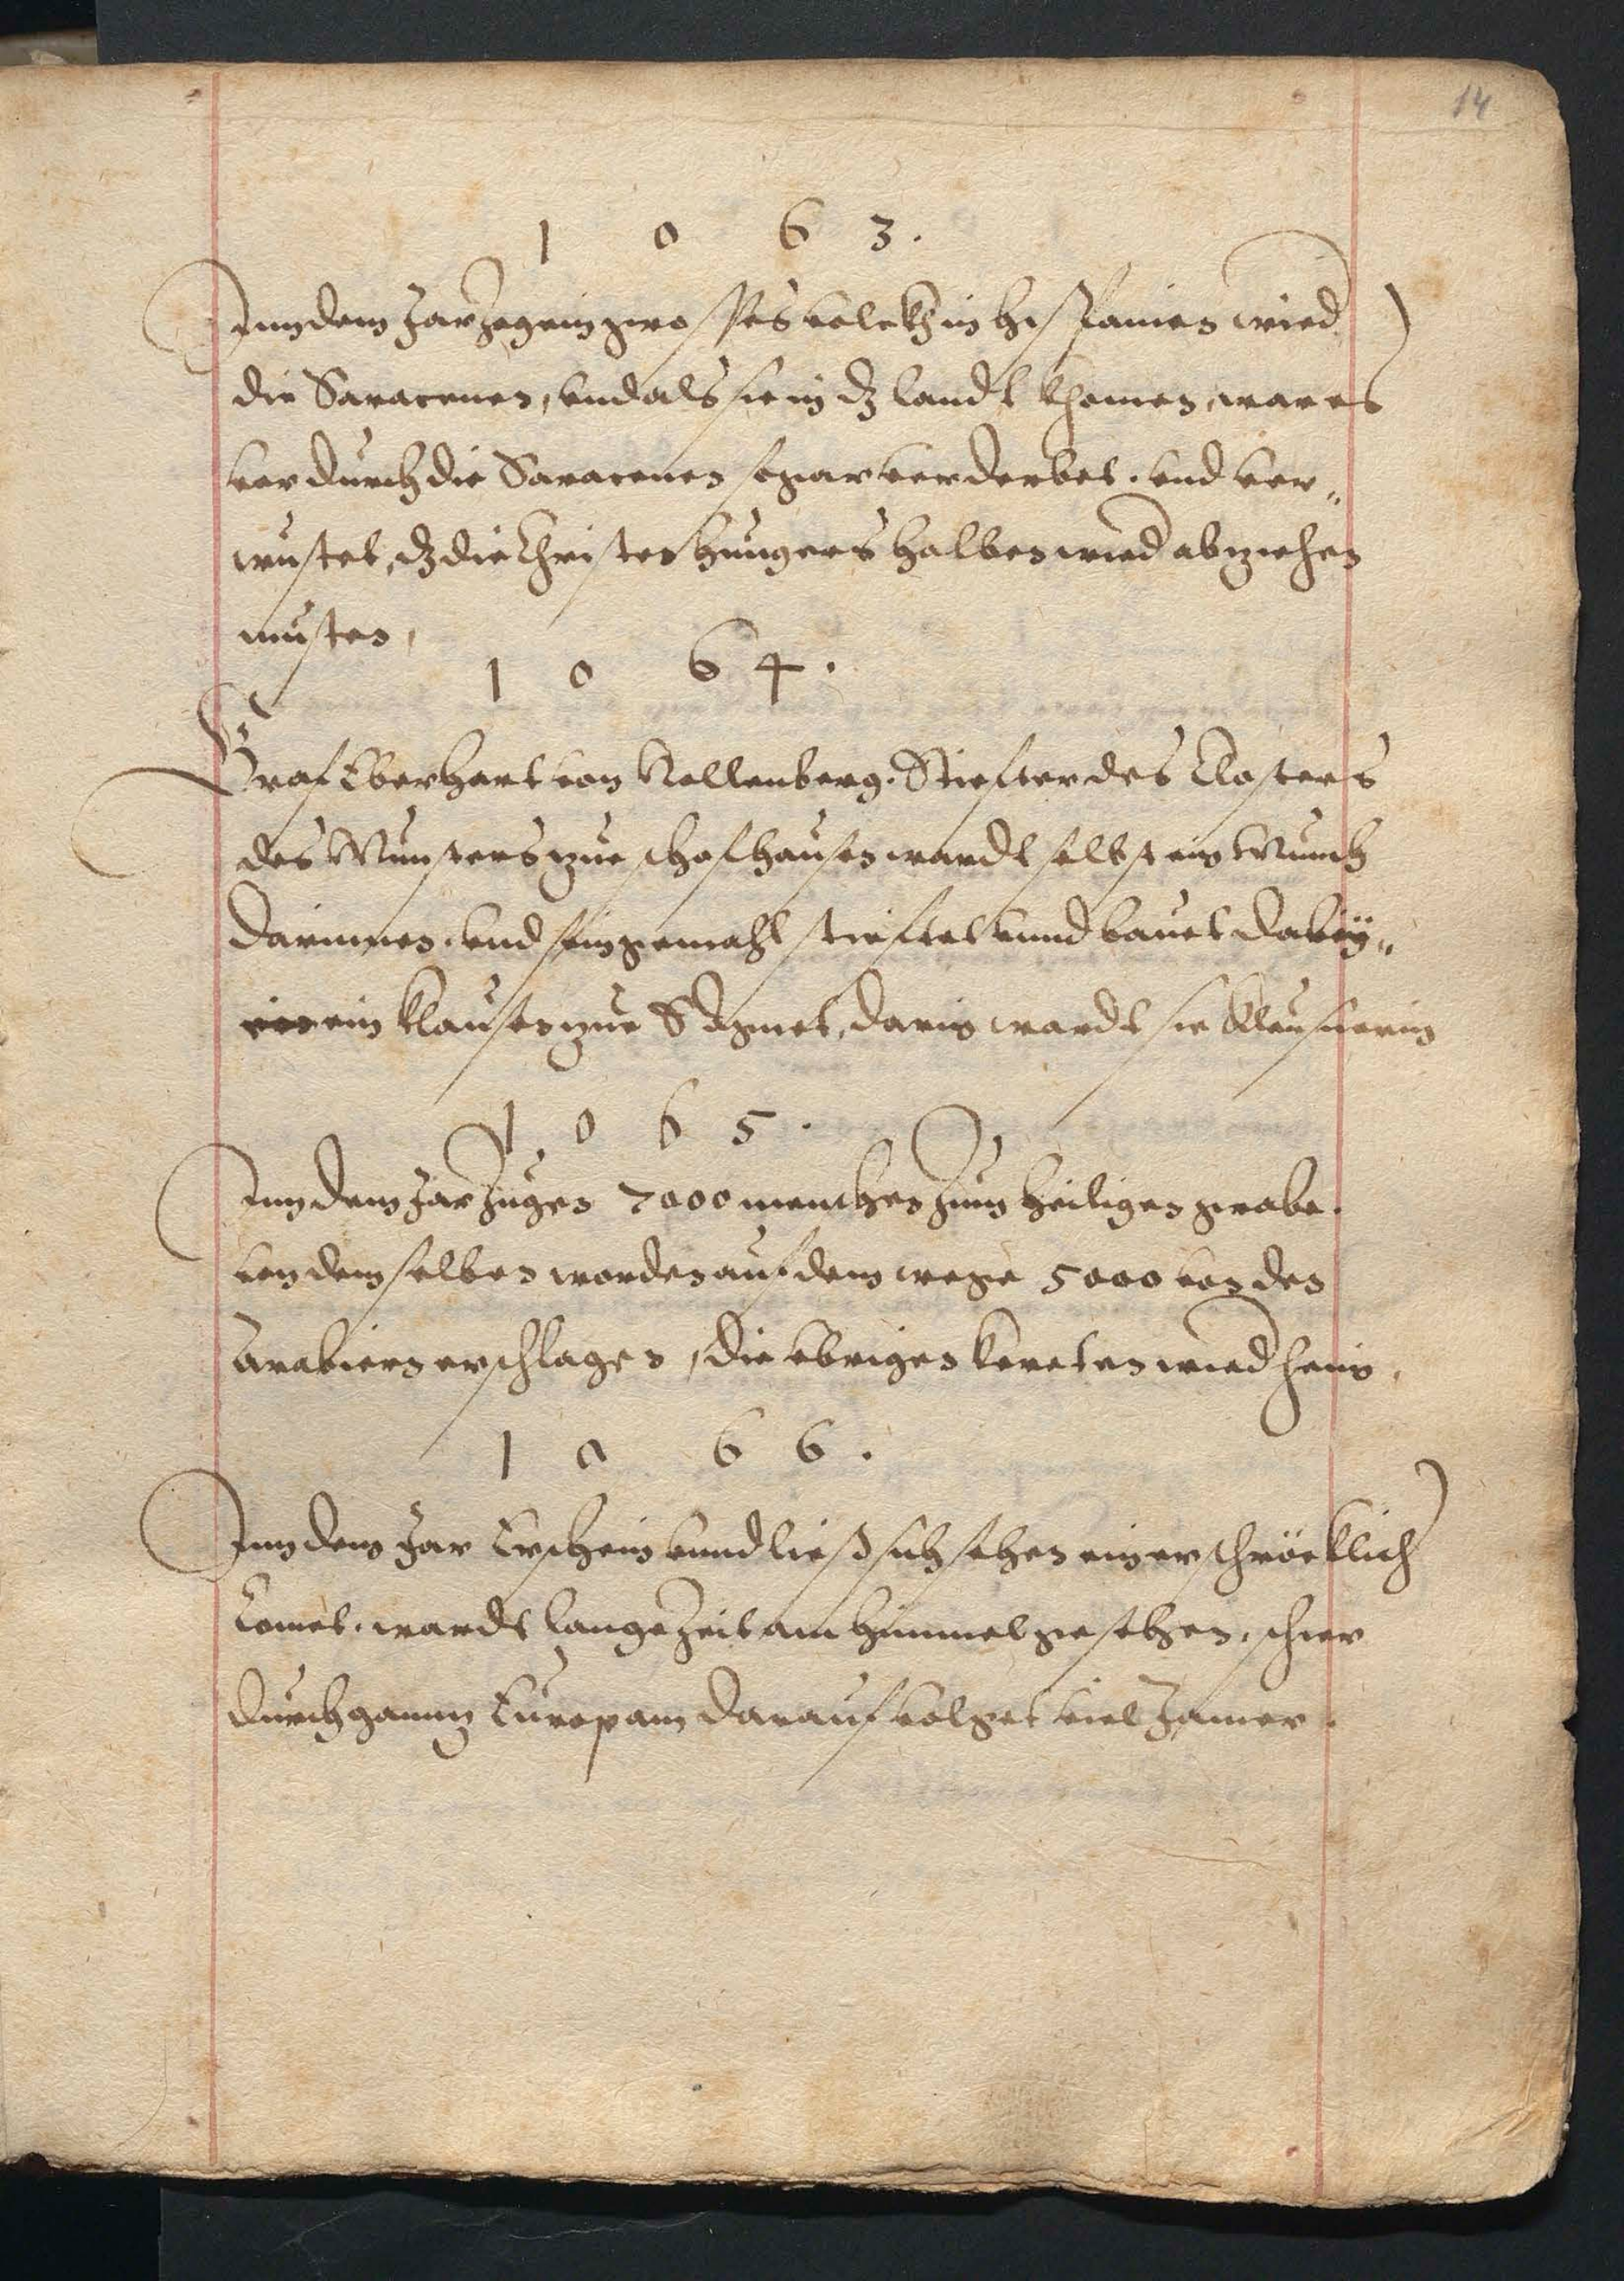 14
1 0 6 3.
Inn dem Jar zog ein gros Ves volckh in Hispanien wied
die Saracener, vnd als sie in dz landt khomen, war es
vor durch die Saracener so gar verderbet. vnd ver„
wustet, dz die Christen hungers halben wied abziehen
musten,
1 0 6 4.
Graf Eberhart von Nellenberg. Stiefter des Closters
des Munsters zue schafhausen wardt selbst ein Munch
darinnen. vnd sein gemahl stieftet vnnd bauet dabeÿ„
ein klausen zue S Agnet, darin wardt sie klausnerin
1 0 6 5.
Inn dem Jar zugen 7000 menschen zum heiligen grabe.
von dem selben worden auf dem wege 5000 von den
Arabiern erschlagen, die vbrigen kereten wied heim,
1 0 6 6.
Inn dem Jar Erschein vnnd ließ sich sehen ein erschröcklich
Comet. wardt lange zeit am himmel gesehen, schier
durch gannz Europam darauf volget viel Jamer.